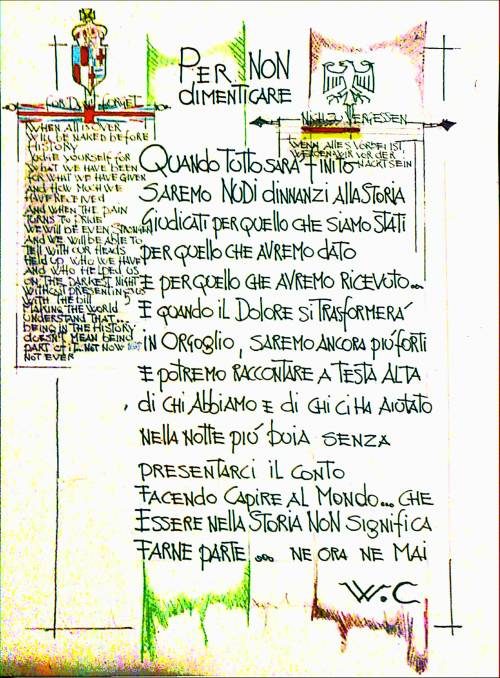 PER NON
DIMENTICARE
FORGET
WHEN ALL IS OVER
WILL BE NAKED BEFORE
HISTORY
JUDGE YOURSELF FOR
WHAT WE HAVE BEEN
FOR WHAT WE HAVE GIVEN
AND HOW MUCH WE
HAVE RECEIVED
AND WHEN THE PAIN
TURNS TO PRIDE
WE WILL BE EVEN STRONGER
AND WE WILL BE ABLE TO
TELL WITH OUR HEADS
HELD UP WHO WE HAVE
AND WHO HELPED US
ON THE DARKEST NIGHT
WITHOUT PRESENTING US
WITH THE BILL
MAKING THE WORLD
UNDERSTAND THAT...
BEING IN THE HISTORY
DOESN'T MEAN BEING
PART OF IT... NOT NOW
NOT EVER
ZU VERGESSEN
WENN ALLES VORBEI IST
WERDEN WIR VOR DER
NACKT SEIN
QUANDO TUTTO SARÀ FINITO
SAREMO NUDI DINNANZI ALLA STORIA
GIUDICATI PER QUELLO CHE SIAMO STATI
PER QUELLO CHE AVREMO DATO
E PER QUELLO CHE AVREMO RICEVUTO...
E QUANDO IL DOLORE SI TRASFORMERÁ
IN ORGOGLIO, SAREMO ANCORA PIÚ FORTI
E POTREMO RACCONTARE A TESTA ALTA
DI CHI ABBIAMO E DI CHI CI HA AIUTATO
NELLA NOTTE PIÚ BUIA SENZA
PRESENTARCI IL CONTO
FACENDO CAPIRE AL MONDO... CHE
ESSERE NELLA STORIA NON SIGNIFICA
FARNE PARTE ... NE ORA NE MAI
W.C